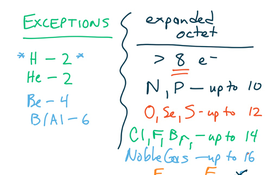 EXCEPTIONS
* H - 2 *
He - 2
Be - 4
B/Al - 6
expanded
octet
> 8 e-
N, P - up to 10
O, Se, S - up to 12
Cl, F, Br, - up to 14
Noble Gas - up to 16